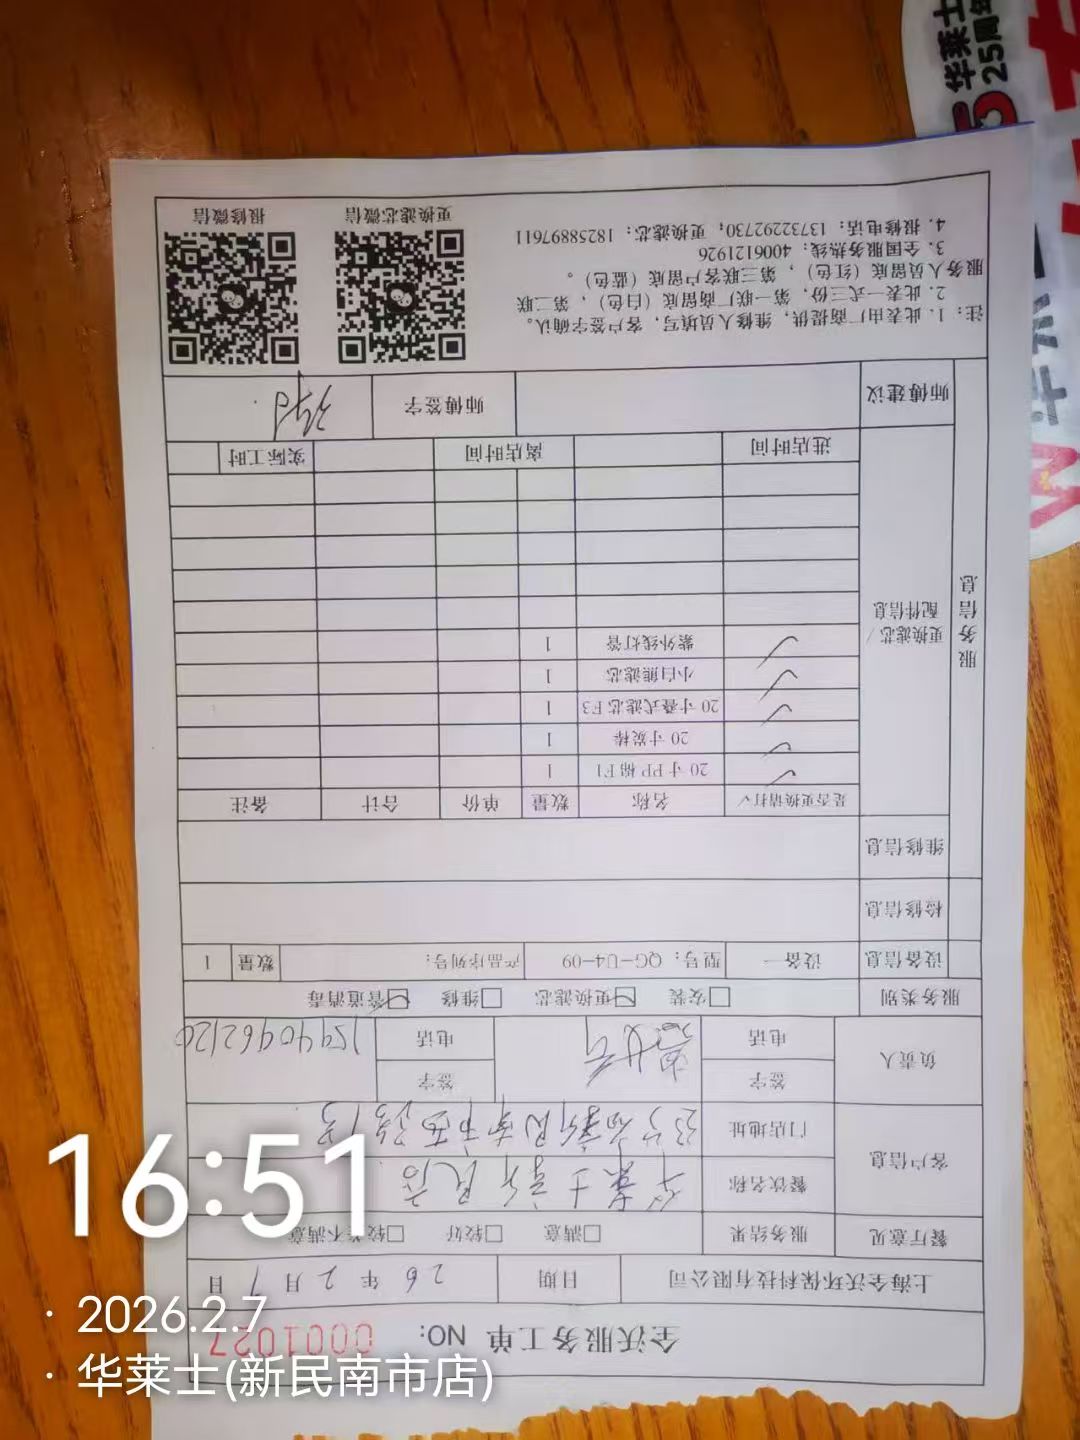 全沃服务工单 NO: 0001027
上海全沃环保科技有限公司 日期 26年2月7日
餐厅意见 服务结果 □满意 □较好 □较差不满意
客户信息 餐饮名称 华莱士新民店
门店地址 辽宁省新民南市西路1号
负责人 签字 签字
电话 电话 15940962120
服务类别 □安装 ☑更换滤芯 □维修 ☑管道消毒
设备信息 设备一 型号: QG-U4-09 产品序列号: 数量 1
检修信息
服务信息
维修信息
更换滤芯/配件信息
是否更换请打✓ 名称 数量 单价 合计 备注
✓ 20寸PP棉F1 1
✓ 20寸炭棒 1
✓ 20寸叠式滤芯F3 1
✓ 小白熊滤芯 1
✓ 紫外线灯管 1
进店时间 离店时间 实际工时
师傅建议 师傅签字
注: 1. 此表由厂商提供, 维修人员填写, 客户签字确认。
2. 此表一式三份, 第一联厂商留底(白色), 第二联
服务人员留底(红色), 第三联客户留底(蓝色)。
3. 全国服务热线: 4006121926
4. 报修电话: 13732292730; 更换滤芯: 18258897611
更换滤芯微信 报修微信
16:51
· 2026.2.7
· 华莱士(新民南市店)
华莱士
25周年